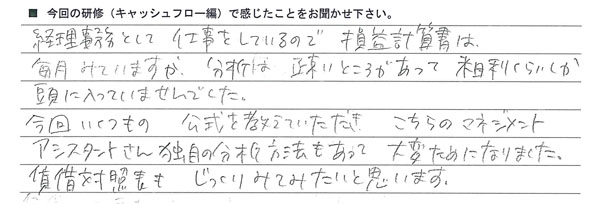 ■ 今回の研修（キャッシュフロー編）で感じたことをお聞かせ下さい。
経理事務として 仕事をしているので 損益計算書は、
毎月 みていますが、分析は 疎いところがあって 粗利くらいしか
頭に入っていませんでした。
今回 いくつもの 公式を教えていただき こちらの マネジメント
アシスタントさん独自の分析方法もあって 大変ためになりました。
貸借対照表も じっくり みてみたいと思います。